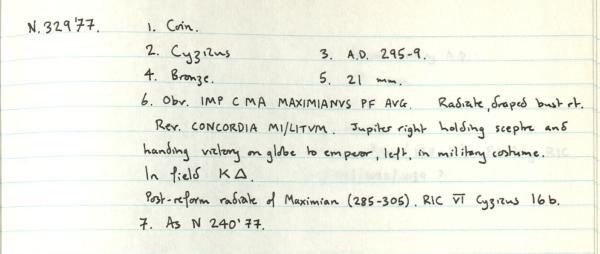 N.329'77. 1. Coin.
2. Cyzicus 3. A.D. 295-9.
4. Bronze. 5. 21 mm.
6. Obv. IMP C MA MAXIMIANVS PF AVG. Radiate, draped bust rt.
Rev. CONCORDIA MI/LITVM. Jupiter right holding sceptre and
handing victory on globe to emperor, left, in military costume.
In field K Δ.
Post-reform radiate of Maximian (285-305). RIC VI Cyzicus 16b.
7. As N 240'77.